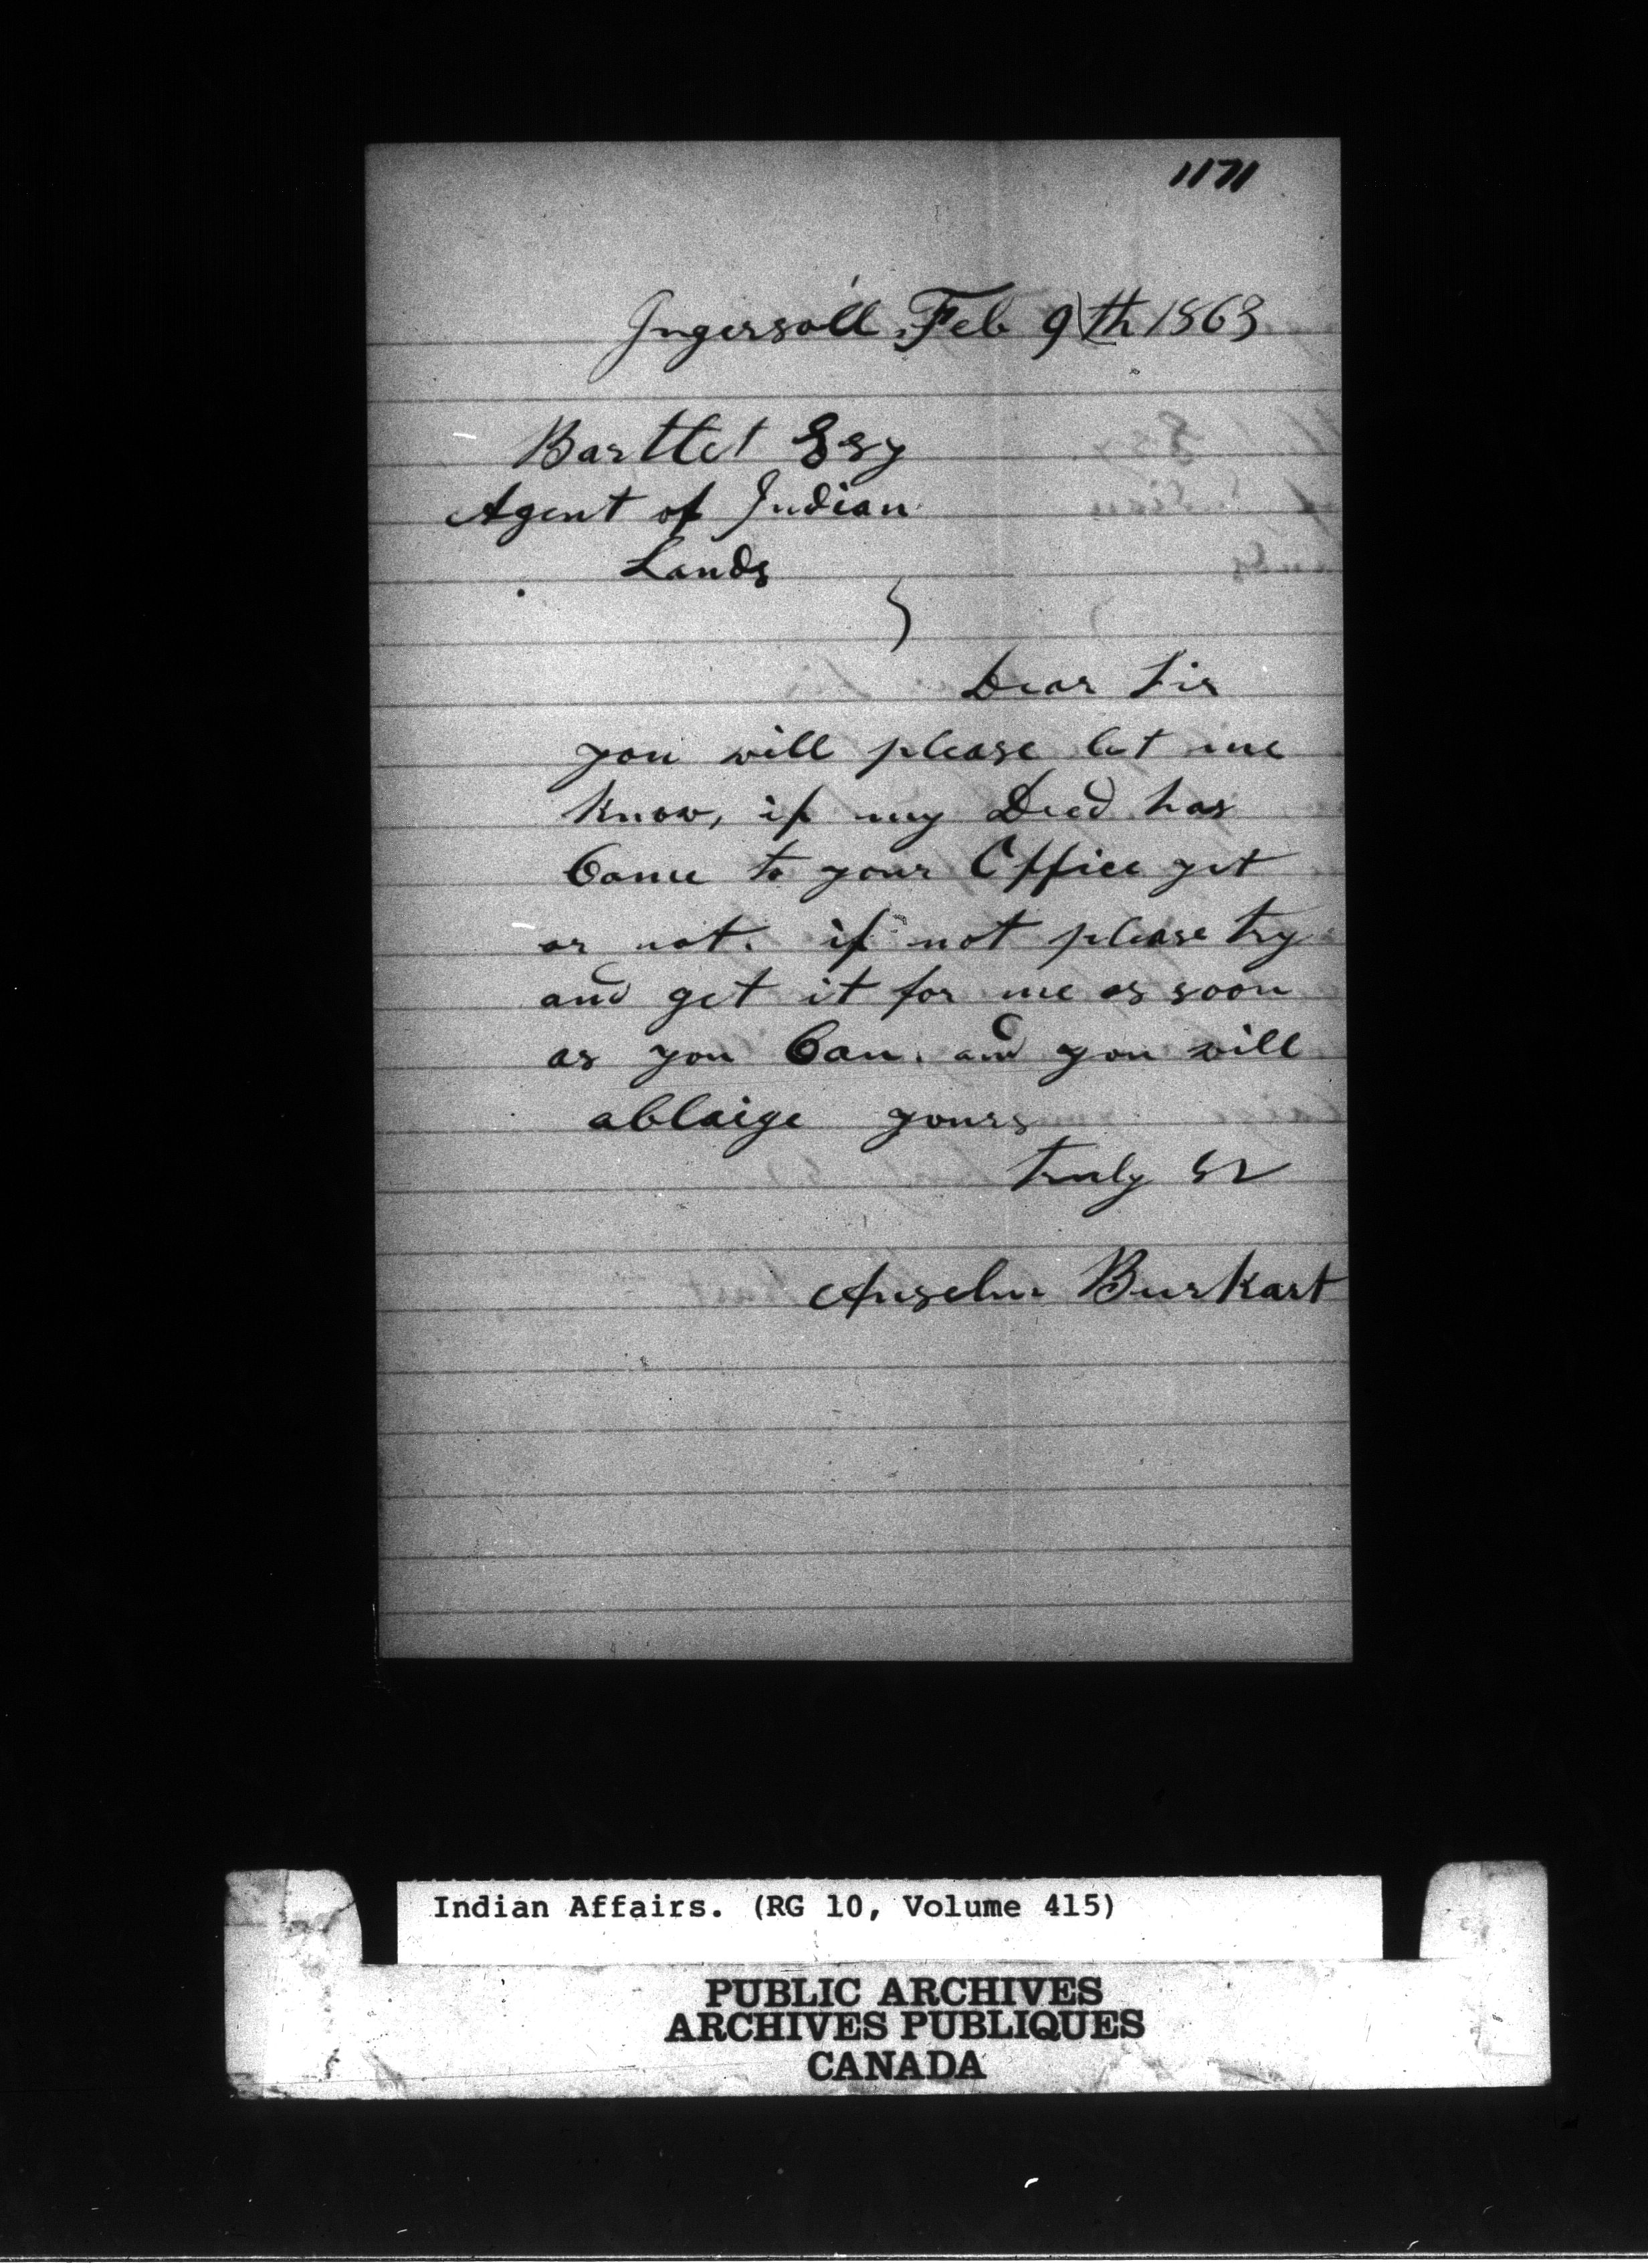 1171
Ingersoll, Feb 9th 1863
Bartlet Esq
Agent of Indian
Lands
Dear Sir
you will please let me
know, if my Deed has
Came to your Office yet
or not. if not please try
and get it for me as soon
as you Can. and you will
ablaige yours
truly
Anselm Burkart
Indian Affairs. (RG 10, Volume 415)
PUBLIC ARCHIVES
ARCHIVES PUBLIQUES
CANADA